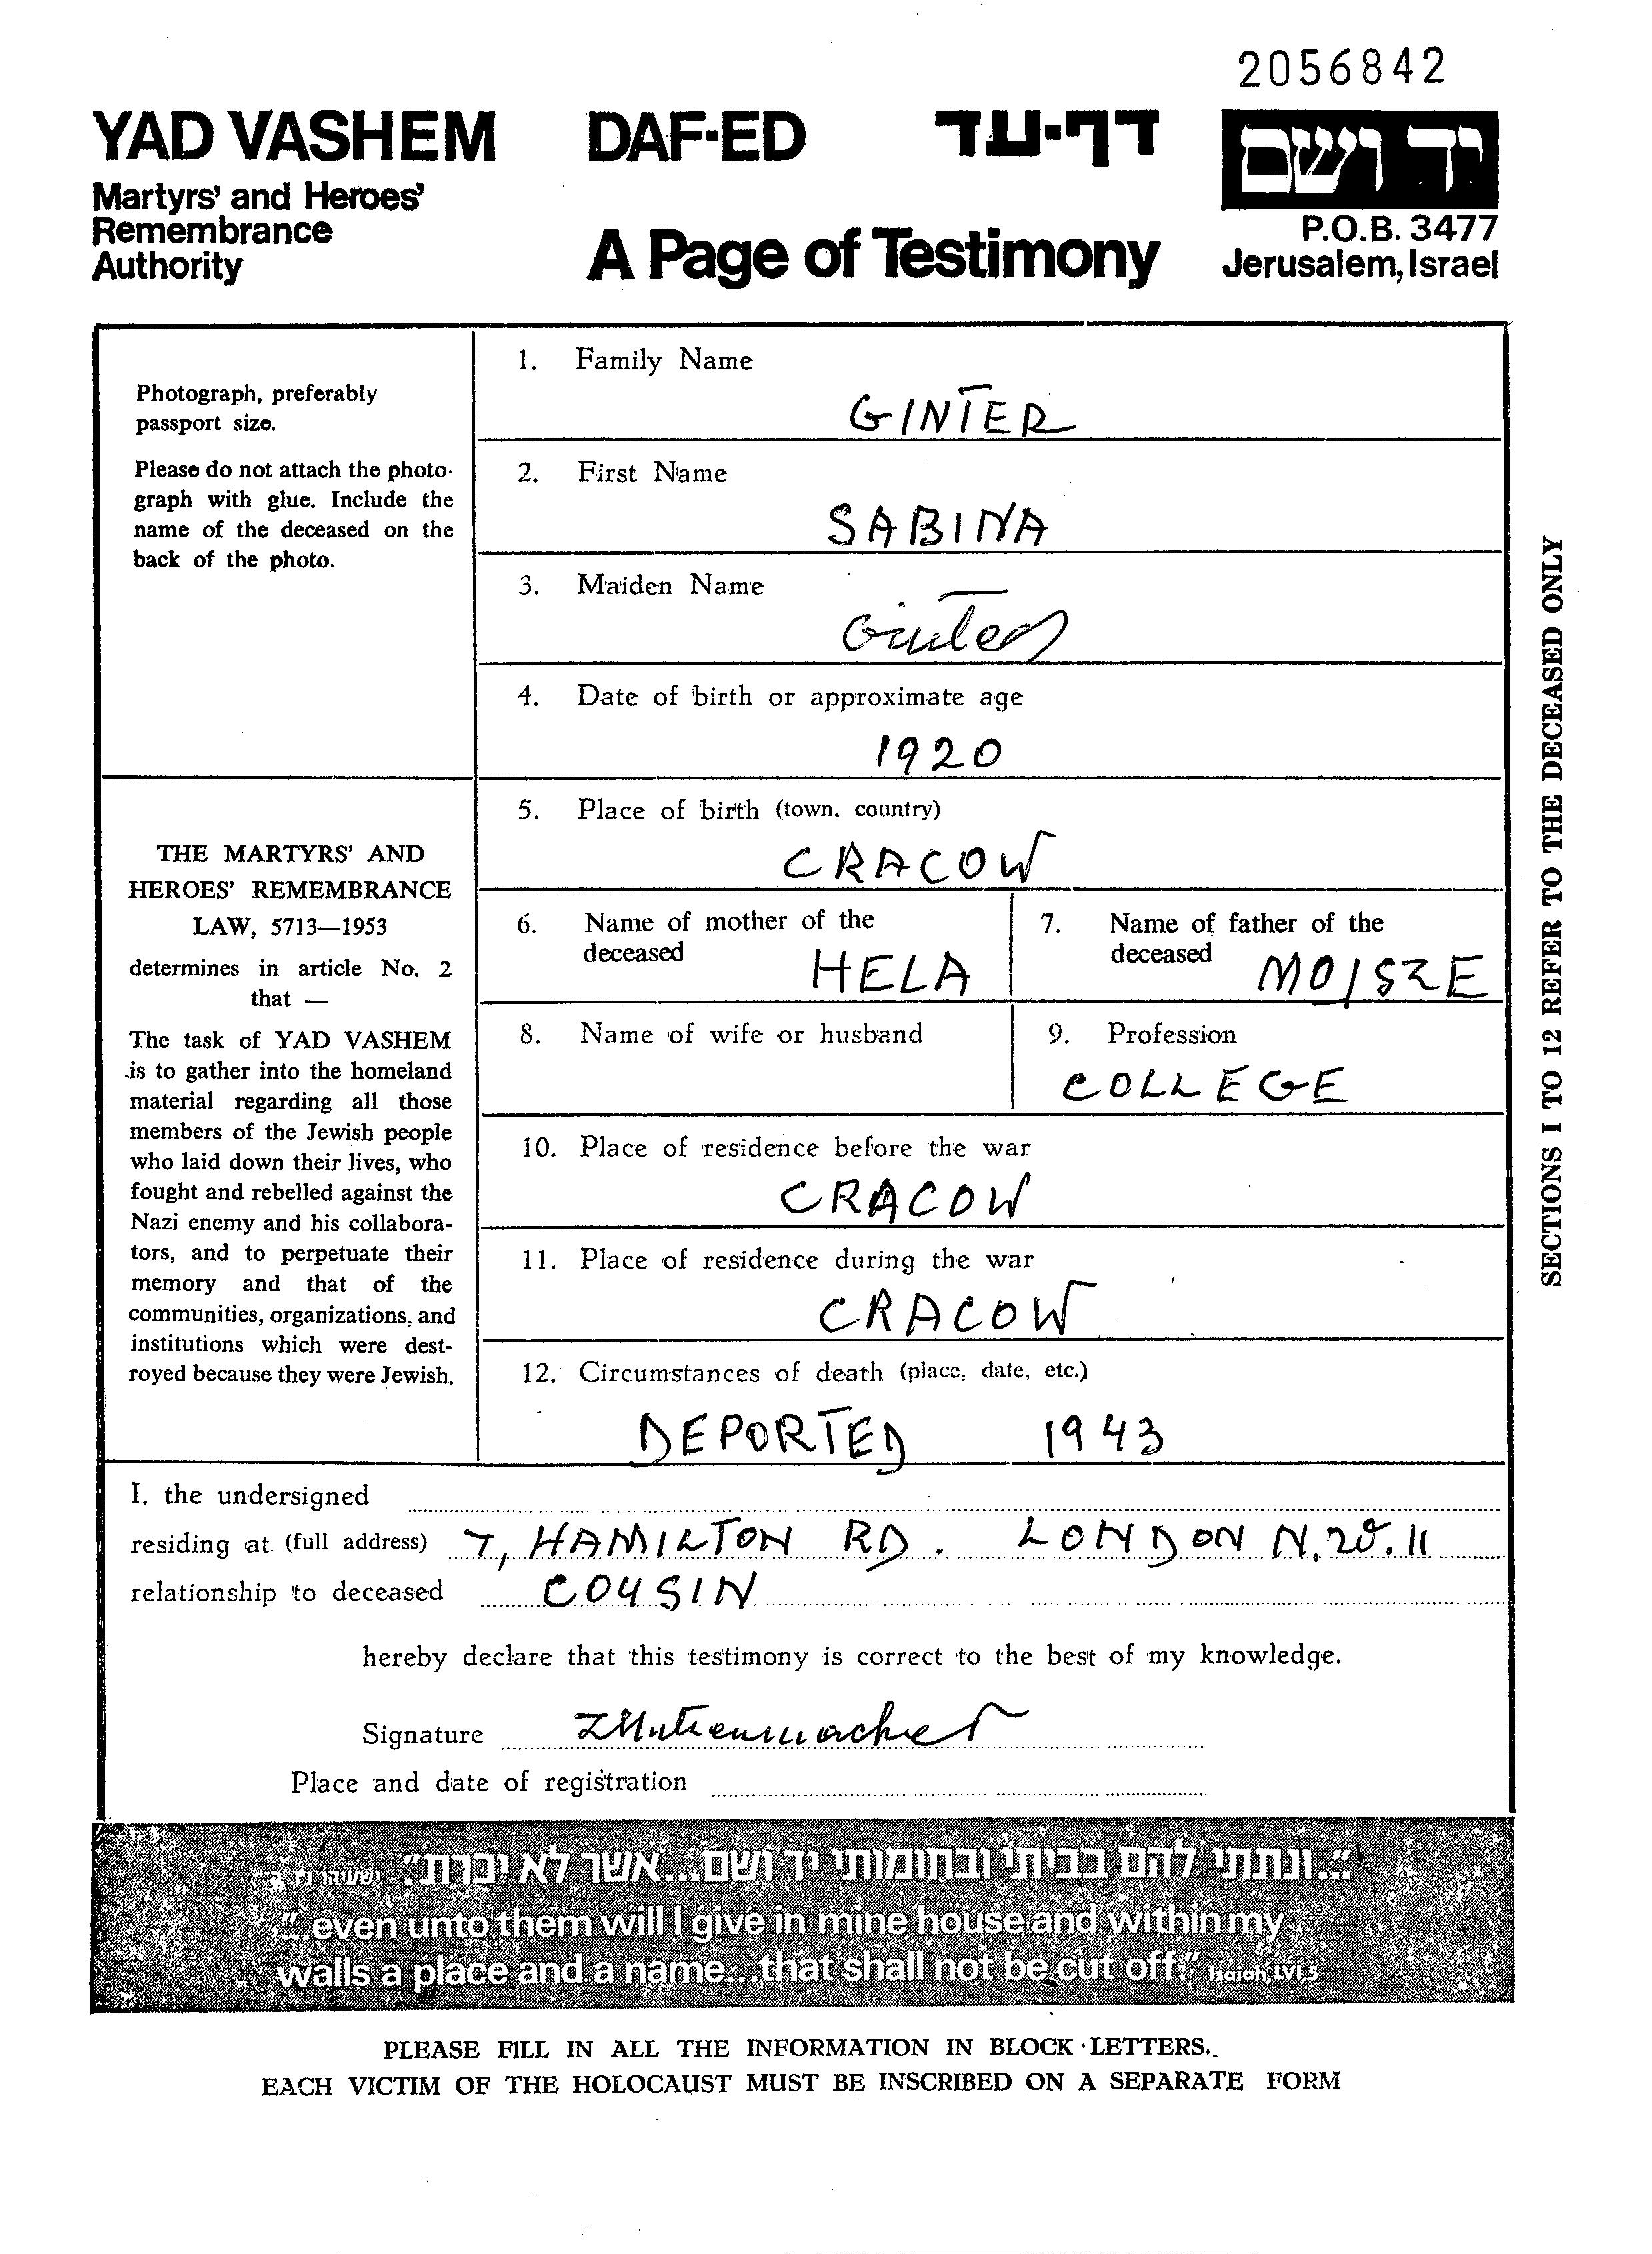 2056842
YAD VASHEM DAF-ED דף-עד יד ושם
Martyrs' and Heroes'
Remembrance
Authority
A Page of Testimony
P.O.B. 3477
Jerusalem, Israel
Photograph, preferably
passport size.
Please do not attach the photo-
graph with glue. Include the
name of the deceased on the
back of the photo.
1. Family Name
GINTER
2. First Name
SABINA
3. Maiden Name
Ginter
4. Date of birth or approximate age
1920
THE MARTYRS' AND
HEROES' REMEMBRANCE
LAW, 5713—1953
determines in article No. 2
that —
The task of YAD VASHEM
is to gather into the homeland
material regarding all those
members of the Jewish people
who laid down their lives, who
fought and rebelled against the
Nazi enemy and his collabora-
tors, and to perpetuate their
memory and that of the
communities, organizations, and
institutions which were dest-
royed because they were Jewish.
5. Place of birth (town, country)
CRACOW
6. Name of mother of the
deceased
HELA
7. Name of father of the
deceased
MOJSZE
8. Name of wife or husband
9. Profession
COLLEGE
10. Place of residence before the war
CRACOW
11. Place of residence during the war
CRACOW
12. Circumstances of death (place, date, etc.)
DEPORTED 1943
SECTIONS 1 TO 12 REFER TO THE DECEASED ONLY
I, the undersigned
residing at (full address) 7, HAMILTON RD. LONDON N.W.11
relationship to deceased COUSIN
hereby declare that this testimony is correct to the best of my knowledge.
Signature
Place and date of registration
"...ונתתי להם בביתי ובחומותי יד ושם...אשר לא יכרת". ישעיהו נו ה
"...even unto them will I give in mine house and within my
walls a place and a name...that shall not be cut off." Isaiah, LVI,5
PLEASE FILL IN ALL THE INFORMATION IN BLOCK LETTERS.
EACH VICTIM OF THE HOLOCAUST MUST BE INSCRIBED ON A SEPARATE FORM